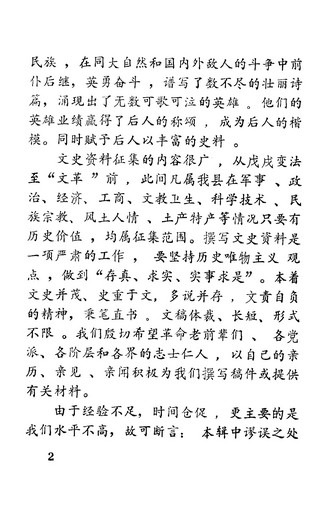 民族，在同大自然和国内外敌人的斗争中前
仆后继，英勇奋斗，谱写了数不尽的壮丽诗
篇，涌现出了无数可歌可泣的英雄。他们的
英雄业绩赢得了后人的称颂，成为后人的楷
模。同时赋予后人以丰富的史料。
文史资料征集的内容很广，从戊戌变法
至“文革”前，此间凡属我县在军事、政
治、经济、工商、文教卫生、科学技术、民
族宗教、风土人情、土产特产等情况只要有
历史价值，均属征集范围。撰写文史资料是
一项严肃的工作，要坚持历史唯物主义观
点，做到“存真、求实、实事求是”。本着
文史并茂、史重于文，多说并存，文责自负
的精神，秉笔直书。文稿体裁、长短、形式
不限。我们殷切希望革命老前辈们、各党
派、各阶层和各界的志士仁人，以自己的亲
历、亲见、亲闻积极为我们撰写稿件或提供
有关材料。
由于经验不足，时间仓促，更主要的是
我们水平不高，故可断言：本辑中谬误之处
2